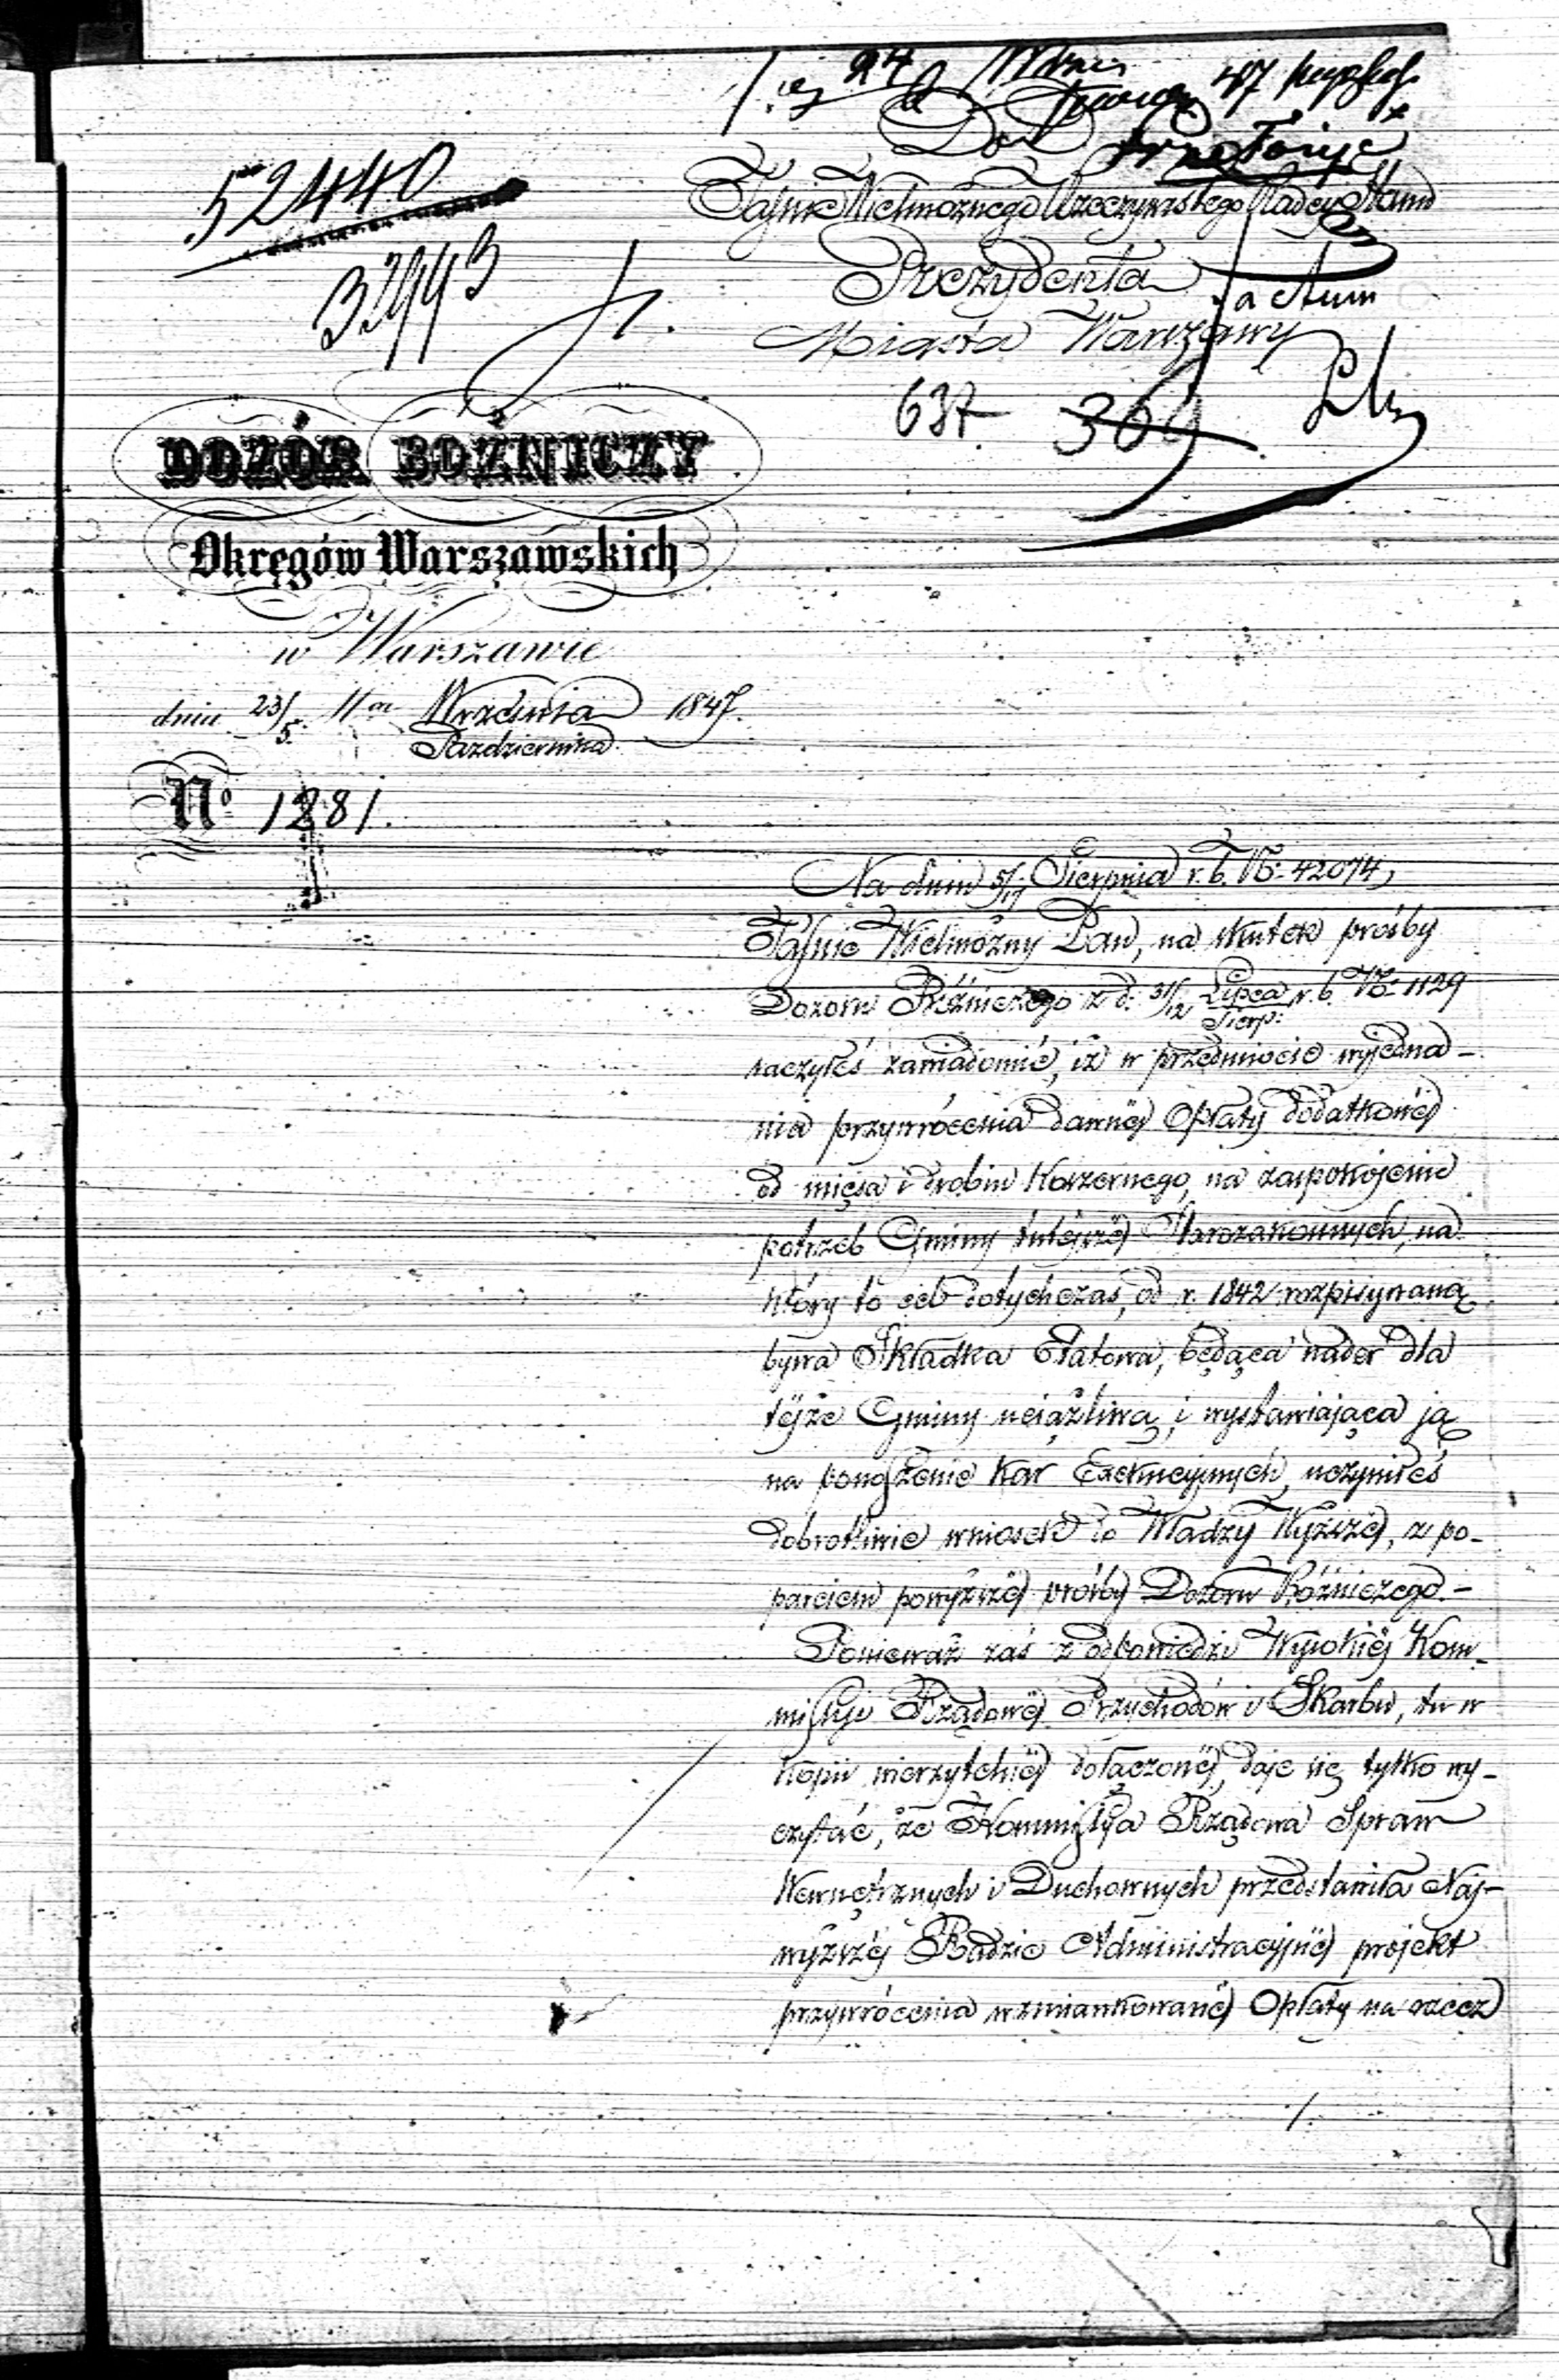 24
47
Do
52440
JaśnieWielmożnego Rzeczywistego Radcy Stanu
32943
Prezydenta
a Actum
Miasta Warszawy
637. 369
DOZÓR BOŻNICZY
Okręgów Warszawskich
w Warszawie
dnia 23/5 Września 1847.
Października
No 1281.
Na dniu 5/17 Sierpnia r. b. No 42074,
Jaśnie Wielmożny Pan, na skutek prośby
Dozoru Bóżniczego z d. 31/12 Lipca r. b. No 1129
Sierp:
raczyłeś zawiadomić, iż w przedmiocie wyjedna-
nia przywrócenia dawnéj Opłaty dodatkowéj
od mięsa i drobiu Koszernego, na zaspokojenie
potrzeb Gminy tutejszéj Starozakonnych, na
który to cel dotychczas, od r. 1842 rozpisywaną
bywa Składka Etatowa, będąca nader dla
téjże Gminy uciążliwą i wystawiająca ją
na ponoszenie Kar Exekucyjnych, uczyniłeś
dobrotliwie wniosek do Władzy Wyższéj, z po-
parciem powyższéj prośby Dozoru Bóżniczego.-
Ponieważ zaś z odpowiedzi Wysokiéj Kom-
missyi Rządowéj Przychodów i Skarbu, tu w
kopii wierzytelnéj dołączonéj, daje się tylko wy-
czytać, że Kommissya Rządowa Spraw
Wewnętrznych i Duchownych przedstawiła Naj-
wyższéj Radzie Administracyjnéj projekt
przywrócenia wzmiankowanéj Opłaty na rzecz